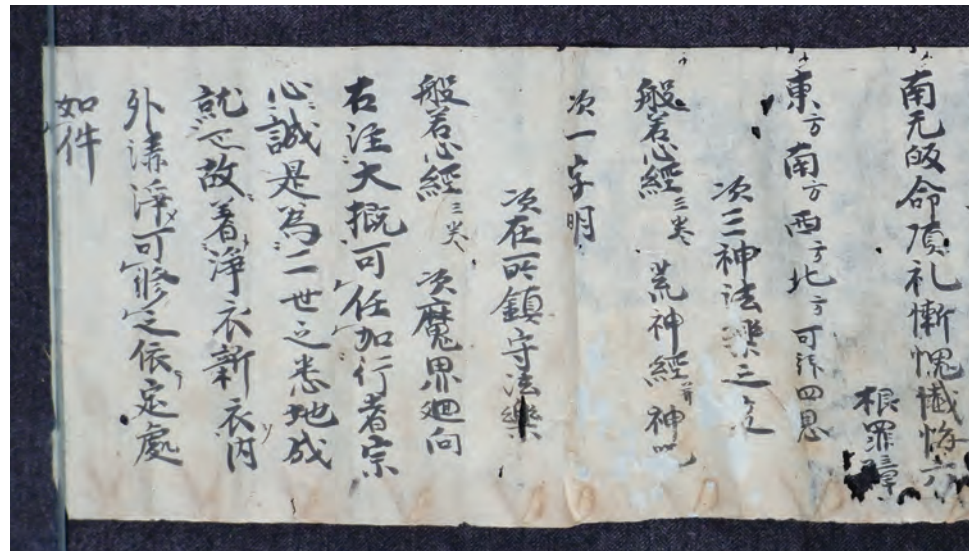 南无皈命頂礼慚愧懺悔六
根罪障
東方南方西方北方可拜四恩
次三神法樂之
般若心經三巻 荒神經并神咒
次一字明
次在所鎮守法樂
般若心經三巻 次魔界廻向
右注大概可任加行者宗
心誠是為二世之悉地成
就之故着淨衣新衣内
外清淨可修之依定處
如件